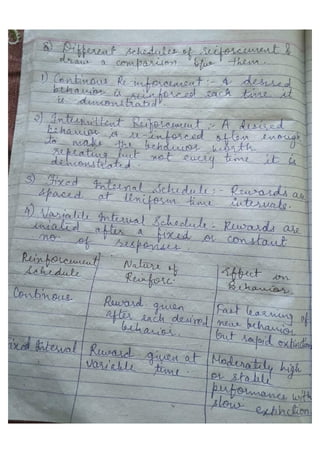 8) Different schedules of reiforcement &
draw a comparison b/w them.
1) Continous Re inforcement :- A desired
behavior is reinforced each time it
is demonstrated.
2) Intermittent Reiforcement :- A desired
behavior is re-inforced often enough
to make the behaviour worth
repeating but not every time it is
demonstrated.
3) Fixed Interval Schedule :- Rewards are
spaced at Uniform time intervals.
4) Variable Interval Schedule :- Rewards are
after a fixed or constant
no. of responses
Reinforcement Schedule
Nature of Reinforc.
Effect on Behavior
Continous
Reward given
after each desired
behavior.
Fast learning of
new behavior
but rapid extinction
Fixed Interval
Reward given at
variable time.
Moderately high
or stable
performance with
slow extinction.